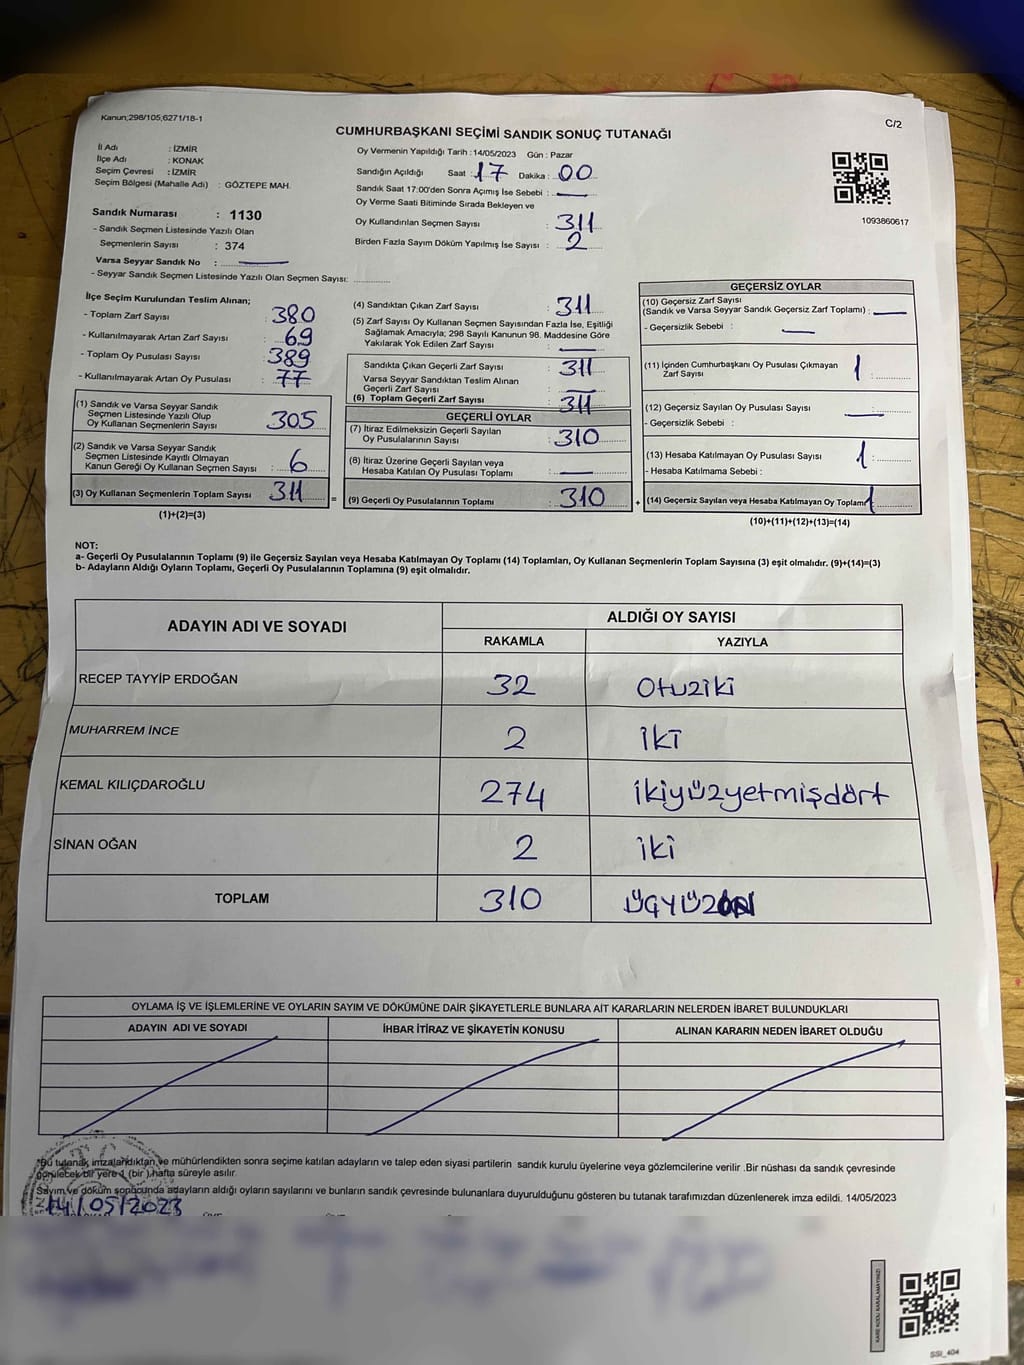 Kanun;298/105,6271/18-1
C/2
CUMHURBAŞKANI SEÇİMİ SANDIK SONUÇ TUTANAĞI
İl Adı : İZMİR
İlçe Adı : KONAK
Seçim Çevresi : İZMİR
Seçim Bölgesi (Mahalle Adı) : GÖZTEPE MAH.
Sandık Numarası : 1130
- Sandık Seçmen Listesinde Yazılı Olan
Seçmenlerin Sayısı : 374
Varsa Seyyar Sandık No :
- Seyyar Sandık Seçmen Listesinde Yazılı Olan Seçmen Sayısı:
Oy Vermenin Yapıldığı Tarih : 14/05/2023 Gün : Pazar
Sandığın Açıldığı Saat : 17 Dakika : 00
Sandık Saat 17:00'den Sonra Açımış İse Sebebi :
Oy Verme Saati Bitiminde Sırada Bekleyen ve
Oy Kullandırılan Seçmen Sayısı : 311
Birden Fazla Sayım Döküm Yapılmış İse Sayısı : 2
1093860617
İlçe Seçim Kurulundan Teslim Alınan;
- Toplam Zarf Sayısı : 380
- Kullanılmayarak Artan Zarf Sayısı : 69
- Toplam Oy Pusulası Sayısı : 389
- Kullanılmayarak Artan Oy Pusulası : 77
(1) Sandık ve Varsa Seyyar Sandık
Seçmen Listesinde Yazılı Olup
Oy Kullanan Seçmenlerin Sayısı : 305
(2) Sandık ve Varsa Seyyar Sandık
Seçmen Listesinde Kayıtlı Olmayan
Kanun Gereği Oy Kullanan Seçmen Sayısı : 6
(3) Oy Kullanan Seçmenlerin Toplam Sayısı 311
(1)+(2)=(3)
=
(4) Sandıktan Çıkan Zarf Sayısı : 311
(5) Zarf Sayısı Oy Kullanan Seçmen Sayısından Fazla İse, Eşitliği
Sağlamak Amacıyla; 298 Sayılı Kanunun 98. Maddesine Göre
Yakılarak Yok Edilen Zarf Sayısı :
Sandıkta Çıkan Geçerli Zarf Sayısı : 311
Varsa Seyyar Sandıktan Teslim Alınan
Geçerli Zarf Sayısı :
(6) Toplam Geçerli Zarf Sayısı : 311
GEÇERLİ OYLAR
(7) İtiraz Edilmeksizin Geçerli Sayılan
Oy Pusulalarının Sayısı : 310
(8) İtiraz Üzerine Geçerli Sayılan veya
Hesaba Katılan Oy Pusulası Toplamı :
(9) Geçerli Oy Pusulalarının Toplamı : 310
+
GEÇERSİZ OYLAR
(10) Geçersiz Zarf Sayısı
(Sandık ve Varsa Seyyar Sandık Geçersiz Zarf Toplamı) :
- Geçersizlik Sebebi :
(11) İçinden Cumhurbaşkanı Oy Pusulası Çıkmayan
Zarf Sayısı : 1
(12) Geçersiz Sayılan Oy Pusulası Sayısı :
- Geçersizlik Sebebi :
(13) Hesaba Katılmayan Oy Pusulası Sayısı : 1
- Hesaba Katılmama Sebebi :
(14) Geçersiz Sayılan veya Hesaba Katılmayan Oy Toplamı 1
(10)+(11)+(12)+(13)=(14)
NOT:
a- Geçerli Oy Pusulalarının Toplamı (9) ile Geçersiz Sayılan veya Hesaba Katılmayan Oy Toplamı (14) Toplamları, Oy Kullanan Seçmenlerin Toplam Sayısına (3) eşit olmalıdır. (9)+(14)=(3)
b- Adayların Aldığı Oyların Toplamı, Geçerli Oy Pusulalarının Toplamına (9) eşit olmalıdır.
ADAYIN ADI VE SOYADI
ALDIĞI OY SAYISI
RAKAMLA YAZIYLA
RECEP TAYYİP ERDOĞAN 32 Otuziki
MUHARREM İNCE 2 iki
KEMAL KILIÇDAROĞLU 274 ikiyüzyetmişdört
SİNAN OĞAN 2 iki
TOPLAM 310 ÜÇYÜZON
OYLAMA İŞ VE İŞLEMLERİNE VE OYLARIN SAYIM VE DÖKÜMÜNE DAİR ŞİKAYETLERLE BUNLARA AİT KARARLARIN NELERDEN İBARET BULUNDUKLARI
ADAYIN ADI VE SOYADI İHBAR İTİRAZ VE ŞİKAYETİN KONUSU ALINAN KARARIN NEDEN İBARET OLDUĞU
*Bu tutanak imzalandıktan ve mühürlendikten sonra seçime katılan adayların ve talep eden siyasi partilerin sandık kurulu üyelerine veya gözlemcilerine verilir .Bir nüshası da sandık çevresinde
görülecek bir yere 1 (bir ) hafta süreyle asılır.
Sayım ve döküm sonucunda adayların aldığı oyların sayılarını ve bunların sandık çevresinde bulunanlara duyurulduğunu gösteren bu tutanak tarafımızdan düzenlenerek imza edildi. 14/05/2023
14/05/2023
KARE KODU KARALAMAYINIZ!
SSI_404